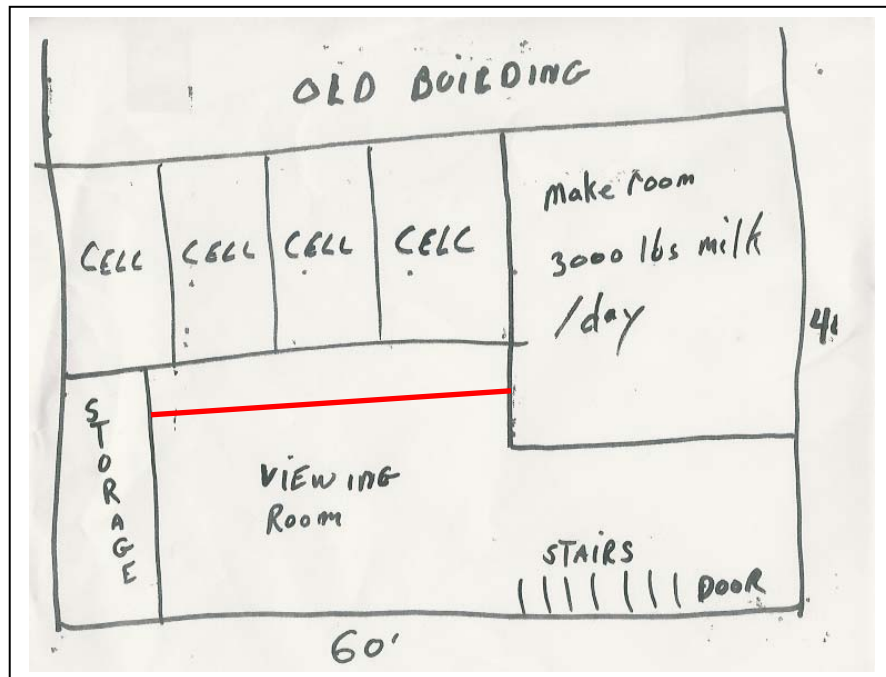 OLD BUILDING
CELL CELL CELL CELL
Make room
3000 lbs milk
/day
STORAGE
VIEWING
Room
STAIRS
DOOR
60'